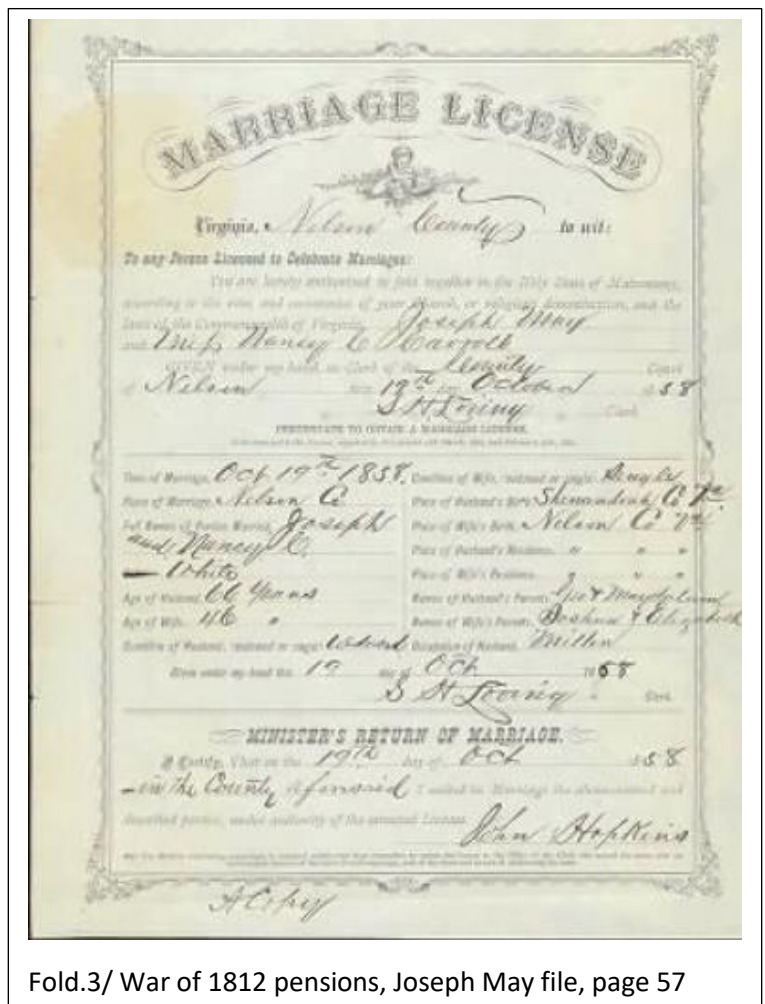 MARRIAGE LICENSE
Virginia, Nelson County to wit:
To any Person Licensed to Celebrate Marriages:
You are hereby authorized to join together in the Holy State of Matrimony,
according to the rites and ceremonies of your Church, or religious denomination, and the
laws of the Commonwealth of Virginia, Joseph May
and Miss Nancy C Carroll
GIVEN under my hand, as Clerk of the County Court
of Nelson this 19th day October 1858
S H Loving Clerk
CERTIFICATE TO OBTAIN A MARRIAGE LICENSE.
Time of Marriage, Oct 19th 1858.
Place of Marriage, Nelson Co
Full Names of Parties Married, Joseph
and Nancy C.
— White
Age of Husband, 66 Years
Age of Wife, 46 "
Condition of Husband, widowed or single, Widowed
Condition of Wife, widowed or single, Single
Place of Husband's Birth, Shenandoah Co Va
Place of Wife's Birth, Nelson Co Va
Place of Husband's Residence, " " "
Place of Wife's Residence, " " "
Names of Husband's Parents, Geo &
Names of Wife's Parents, & Elizabeth
Occupation of Husband, Miller
Given under my hand this 19 day of Oct 1858
S H Loving Clerk
MINISTER'S RETURN OF MARRIAGE.
I Certify, That on the 19th day of Oct 1858
— in the County aforesaid I united in Marriage the above-named and
described parties, under authority of the annexed License.
John Hopkins
A Copy
Fold.3/ War of 1812 pensions, Joseph May file, page 57